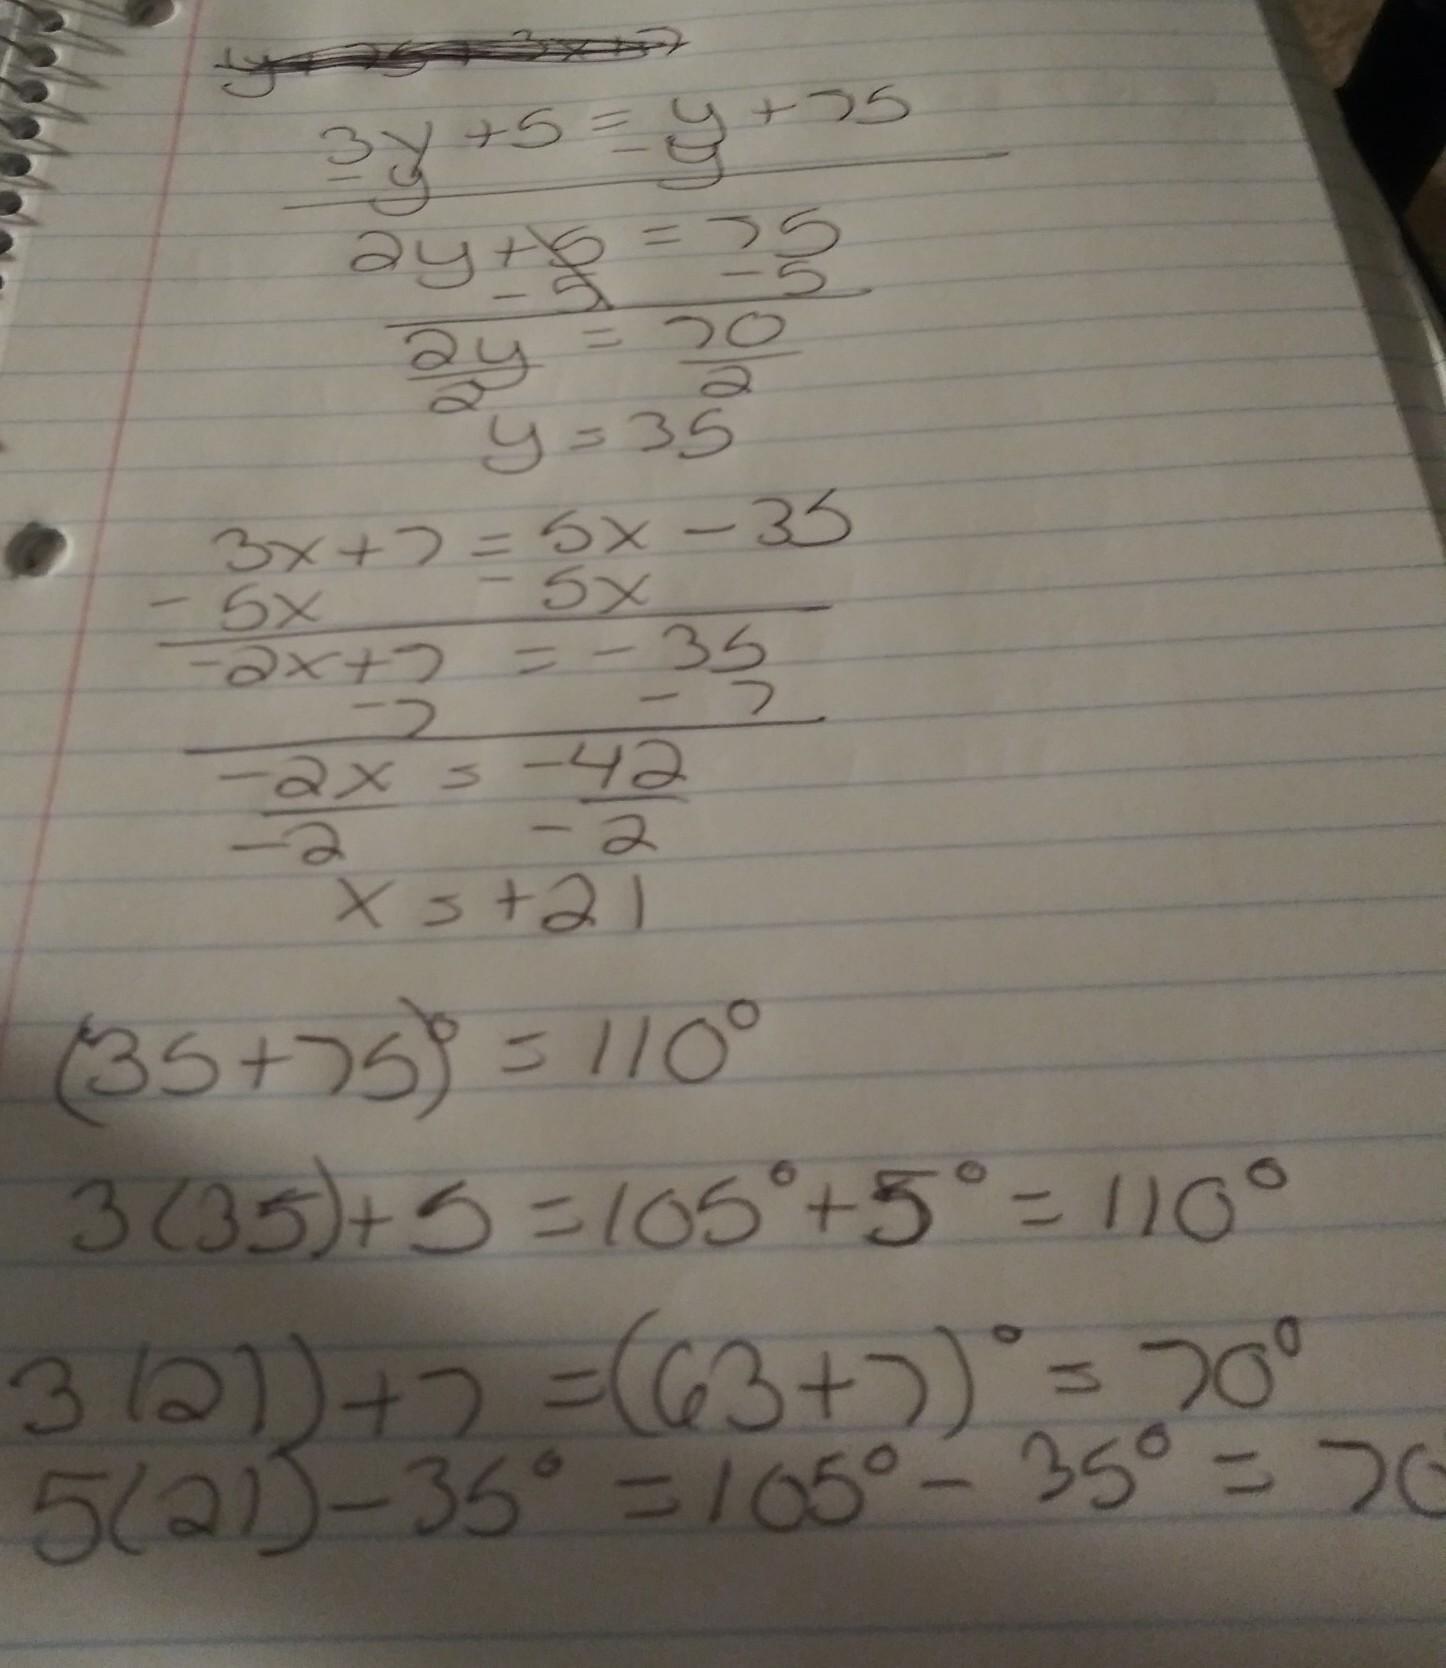 3y + 5 = y + 75
- y - y
2y + 5 = 75
- 5 - 5
2y = 70
2 2
y = 35
3x + 7 = 5x - 35
- 5x - 5x
-2x + 7 = - 35
- 7 - 7
-2x = -42
-2 -2
x = +21
(35 + 75)° = 110°
3(35) + 5 = 105° + 5° = 110°
3(21) + 7 = (63 + 7)° = 70°
5(21) - 35° = 105° - 35° = 70